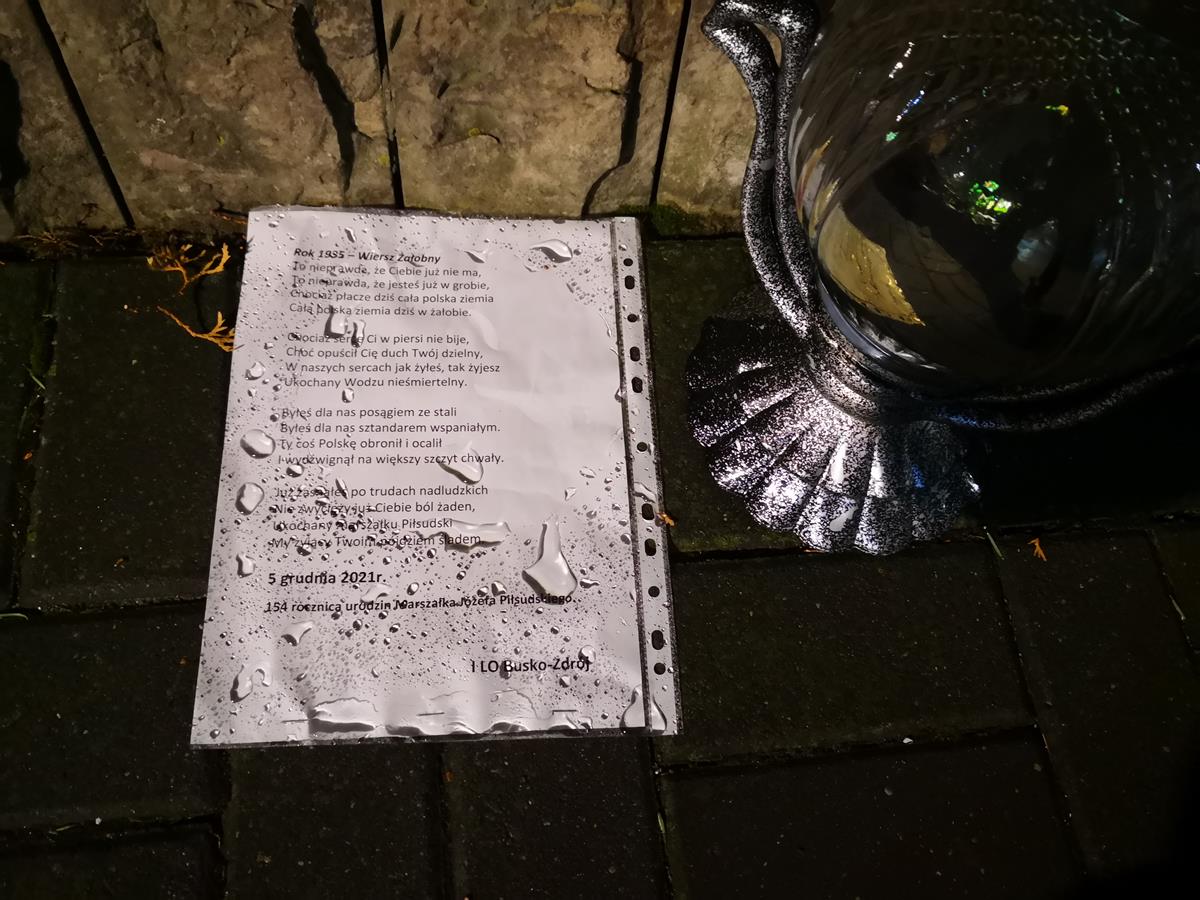 Rok 1935 – Wiersz Żałobny
To nieprawda, że Ciebie już nie ma,
To nieprawda, że jesteś już w grobie,
Chociaż płacze dziś cała polska ziemia
Cała polska ziemia dziś w żałobie.
Chociaż serce Ci w piersi nie bije,
Choć opuścił Cię duch Twój dzielny,
W naszych sercach jak żyłeś, tak żyjesz
Ukochany Wodzu nieśmiertelny.
Byłeś dla nas posągiem ze stali
Byłeś dla nas sztandarem wspaniałym.
Ty coś Polskę obronił i ocalił
I wydźwignął na większy szczyt chwały.
Już zasnąłeś po trudach nadludzkich
Nie zwycięży już Ciebie ból żaden,
Ukochany Marszałku Piłsudski
My żyjący Twoim pójdziem śladem
5 grudnia 2021r.
154 rocznica urodzin Marszałka Józefa Piłsudskiego.
I LO Busko-Zdrój